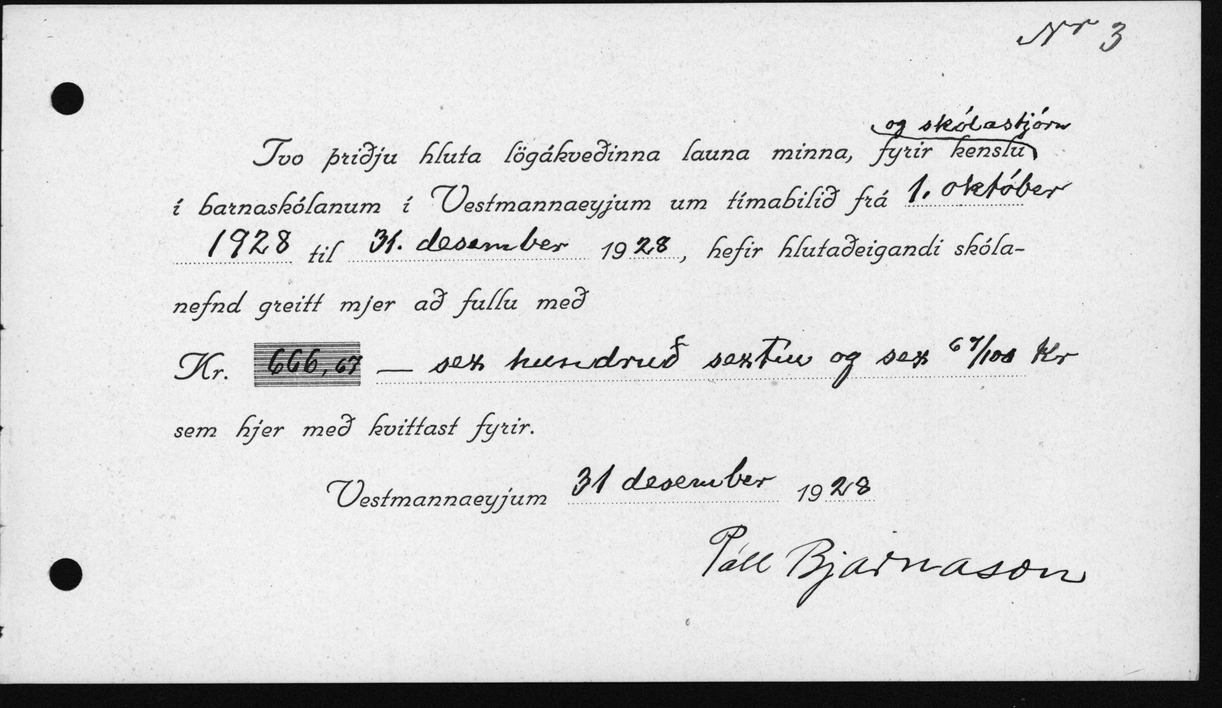 Nr 3
og skólastjórn
Tvo þriðju hluta lögákveðinna launa minna, fyrir kenslu
í barnaskólanum í Vestmannaeyjum um tímabilið frá 1. október
1928 til 31. desember 1928, hefir hlutaðeigandi skóla-
nefnd greitt mjer að fullu með
Kr. 666,67 — sex hundruð sextíu og sex 67/100 Kr
sem hjer með kvittast fyrir.
Vestmannaeyjum 31 desember 1928
Páll Bjarnason